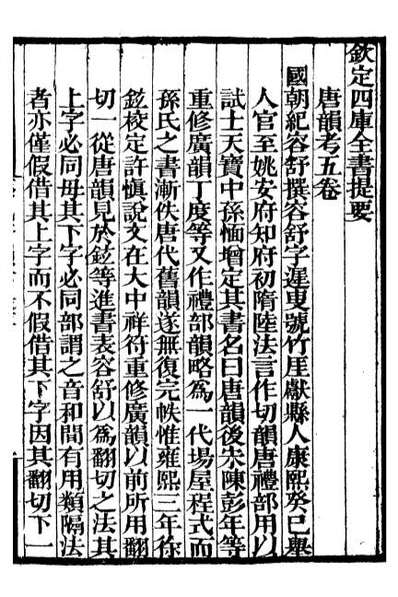 欽定四庫全書提要
唐韻考五卷
國朝紀容舒撰容舒字遲叟號竹厓獻縣人康熙癸巳舉
人官至姚安府知府初隋陸法言作切韻唐禮部用以
試士天寶中孫愐增定其書名曰唐韻後宋陳彭年等
重修廣韻丁度等又作禮部韻略為一代場屋程式而
孫氏之書漸佚唐代舊韻遂無復完帙惟雍熙三年徐
鉉校定許慎說文在大中祥符重修廣韻以前所用翻
切一從唐韻見於鉉等進書表容舒以為翻切之法其
上字必同母其下字必同部謂之音和間有用類隔法
者亦僅假借其上字而不假借其下字因其翻切下一